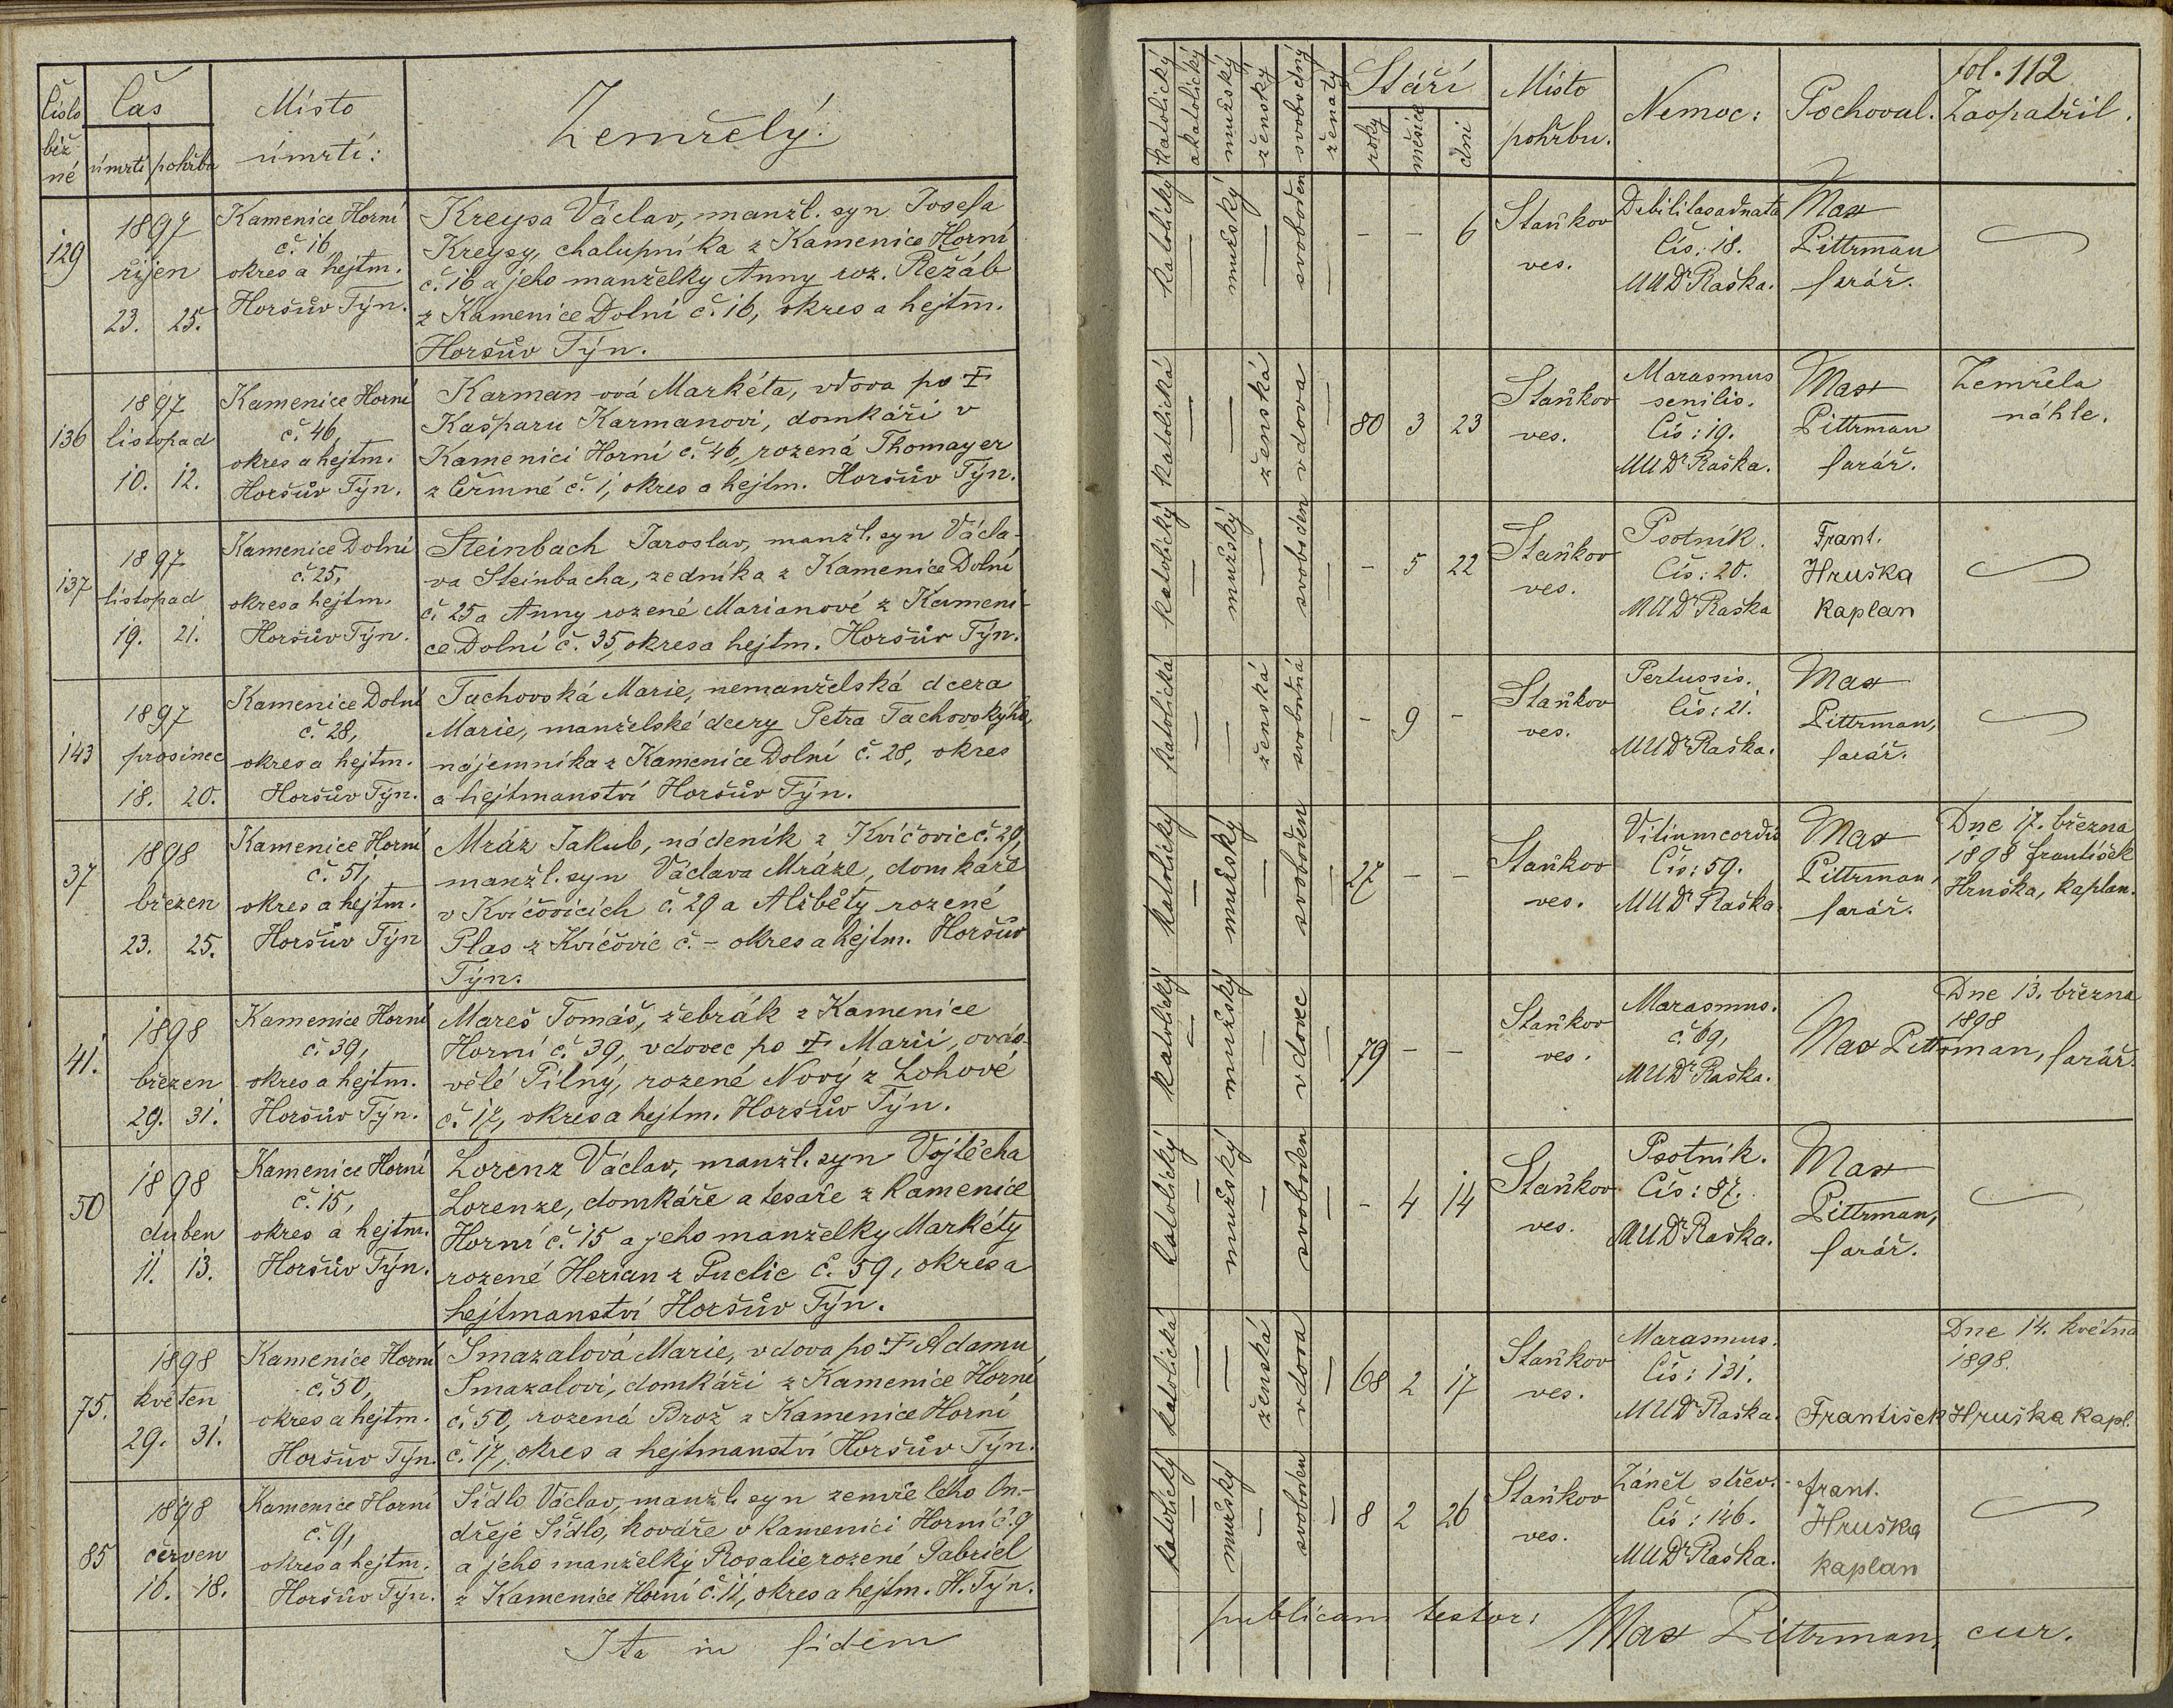 Číslo běž né
Čas
úmrtí pohřbu
Místo
úmrtí:
Zemřelý:
129
1897
říjen
23. 25.
Kamenice Horní
č. 16,
okres a hejtm.
Horšův Týn.
Kreysa Václav, manžl. syn Josefa
Kreysy, chalupníka z Kamenice Horní
č. 16 a jeho manželky Anny roz. Řežáb
z Kamenice Dolní č. 16, okres a hejtm.
Horšův Týn.
136
1897
listopad
10. 12.
Kamenice Horní
č. 46,
okres a hejtm.
Horšův Týn.
Karmanová Markéta, vdova po †
Kašparu Karmanovi, domkáři v
Kamenici Horní č. 46, rozená Thomayer
z Čermné č. 1, okres a hejtm. Horšův Týn.
137
1897
listopad
19. 21.
Kamenice Dolní
č. 25,
okres a hejtm.
Horšův Týn.
Steinbach Jaroslav, manžl. syn Václa-
va Steinbacha, zedníka z Kamenice Dolní
č. 25 a Anny rozené Marianové z Kameni-
ce Dolní č. 35, okres a hejtm. Horšův Týn.
143
1897
prosinec
18. 20.
Kamenice Dolní
č. 28,
okres a hejtm.
Horšův Týn.
Tachovská Marie, nemanželská dcera
Marie, manželské dcery Petra Tachovskýho,
nájemníka z Kamenice Dolní č. 28, okres
a hejtmanství Horšův Týn.
37
1898
březen
23. 25.
Kamenice Horní
č. 51,
okres a hejtm.
Horšův Týn
Mráz Jakub, nádeník z Kvíčovic č. 29,
manžl. syn Václava Mráze, domkáře
v Kvíčovicích č. 29 a Alžběty rozené
Plas z Kvíčovic č. - okres a hejtm. Horšův
Týn.
41.
1898
březen
29. 31.
Kamenice Horní
č. 39,
okres a hejtm.
Horšův Týn.
Mareš Tomáš, žebrák z Kamenice
Horní č. 39, vdovec po † Marii, ovdo-
vělé Pilný, rozené Nový z Lohové
č. 17, okres a hejtm. Horšův Týn.
50
1898
duben
11. 13.
Kamenice Horní
č. 15,
okres a hejtm.
Horšův Týn.
Lorenz Václav, manžl. syn Vojtěcha
Lorenze, domkáře a tesaře z Kamenice
Horní č. 15 a jeho manželky Markéty
rozené Herian z Puclic č. 59, okres a
hejtmanství Horšův Týn.
75.
1898
květen
29. 31.
Kamenice Horní
č. 50,
okres a hejtm.
Horšův Týn.
Smazalová Marie, vdova po † Adamu
Smazalovi, domkáři z Kamenice Horní
č. 50, rozená Brož z Kamenice Horní
č. 17, okres a hejtmanství Horšův Týn.
85
1898
červen
16. 18.
Kamenice Horní
č. 9,
okres a hejtm.
Horšův Týn.
Sídlo Václav, manžl. syn zemřelého On-
dřeje Sídlo, kováře v Kamenici Horní č. 9
a jeho manželky Rosalie rozené Gabriel
z Kamenice Horní č. 11, okres a hejtm. H. Týn.
Ita in fidem
fol. 112
katolický akatolický mužský ženský svobodný ženatý
Stáří
roky měsíce dni
Místo
pohřbu.
Nemoc:
Pochoval.
Zaopatřil.
katolický — mužský — svoboden —
- - 6
Staňkov
ves.
Debilitas adnata
Čís: 18.
MUDr Raška.
Max
Pittrman
farář.
katolická — — ženská vdova —
80 3 23
Staňkov
ves.
Marasmus
senilis.
Čís: 19.
MUDr Raška.
Max
Pittrman
farář.
Zemřela
náhle.
katolický — mužský — svoboden —
- 5 22
Staňkov
ves.
Psotník.
Čís: 20.
MUDr Raška
Frant.
Hruška
kaplan
katolická — — ženská svobodná —
- 9 -
Staňkov
ves.
Pertussis.
Čís: 21.
MUDr Raška.
Max
Pittrman,
farář.
katolický — mužský — svoboden —
27 - -
Staňkov
ves.
Vitium cordis
Čís: 59.
MUDr Raška.
Max
Pittrman,
farář.
Dne 17. března
1898 František
Hruška, kaplan.
katolický — mužský — vdovec —
79 - -
Staňkov
ves.
Marasmus.
č. 69,
MUDr Raška.
Dne 13. března
1898
Max Pittrman, farář.
katolický — mužský — svoboden —
- 4 14
Staňkov
ves.
Psotník.
Čís: 87.
MUDr Raška.
Max
Pittrman,
farář.
katolická — — ženská vdova —
68 2 17
Staňkov
ves.
Marasmus.
Čís: 131.
MUDr Raška.
Dne 14. května
1898.
František Hruška kapl.
katolický — mužský — svoboden —
8 2 26
Staňkov
ves.
Zánět střev.
Čís: 146.
MUDr Raška.
Frant.
Hruška
kaplan
publicam testor:
Max Pittrman, cur.